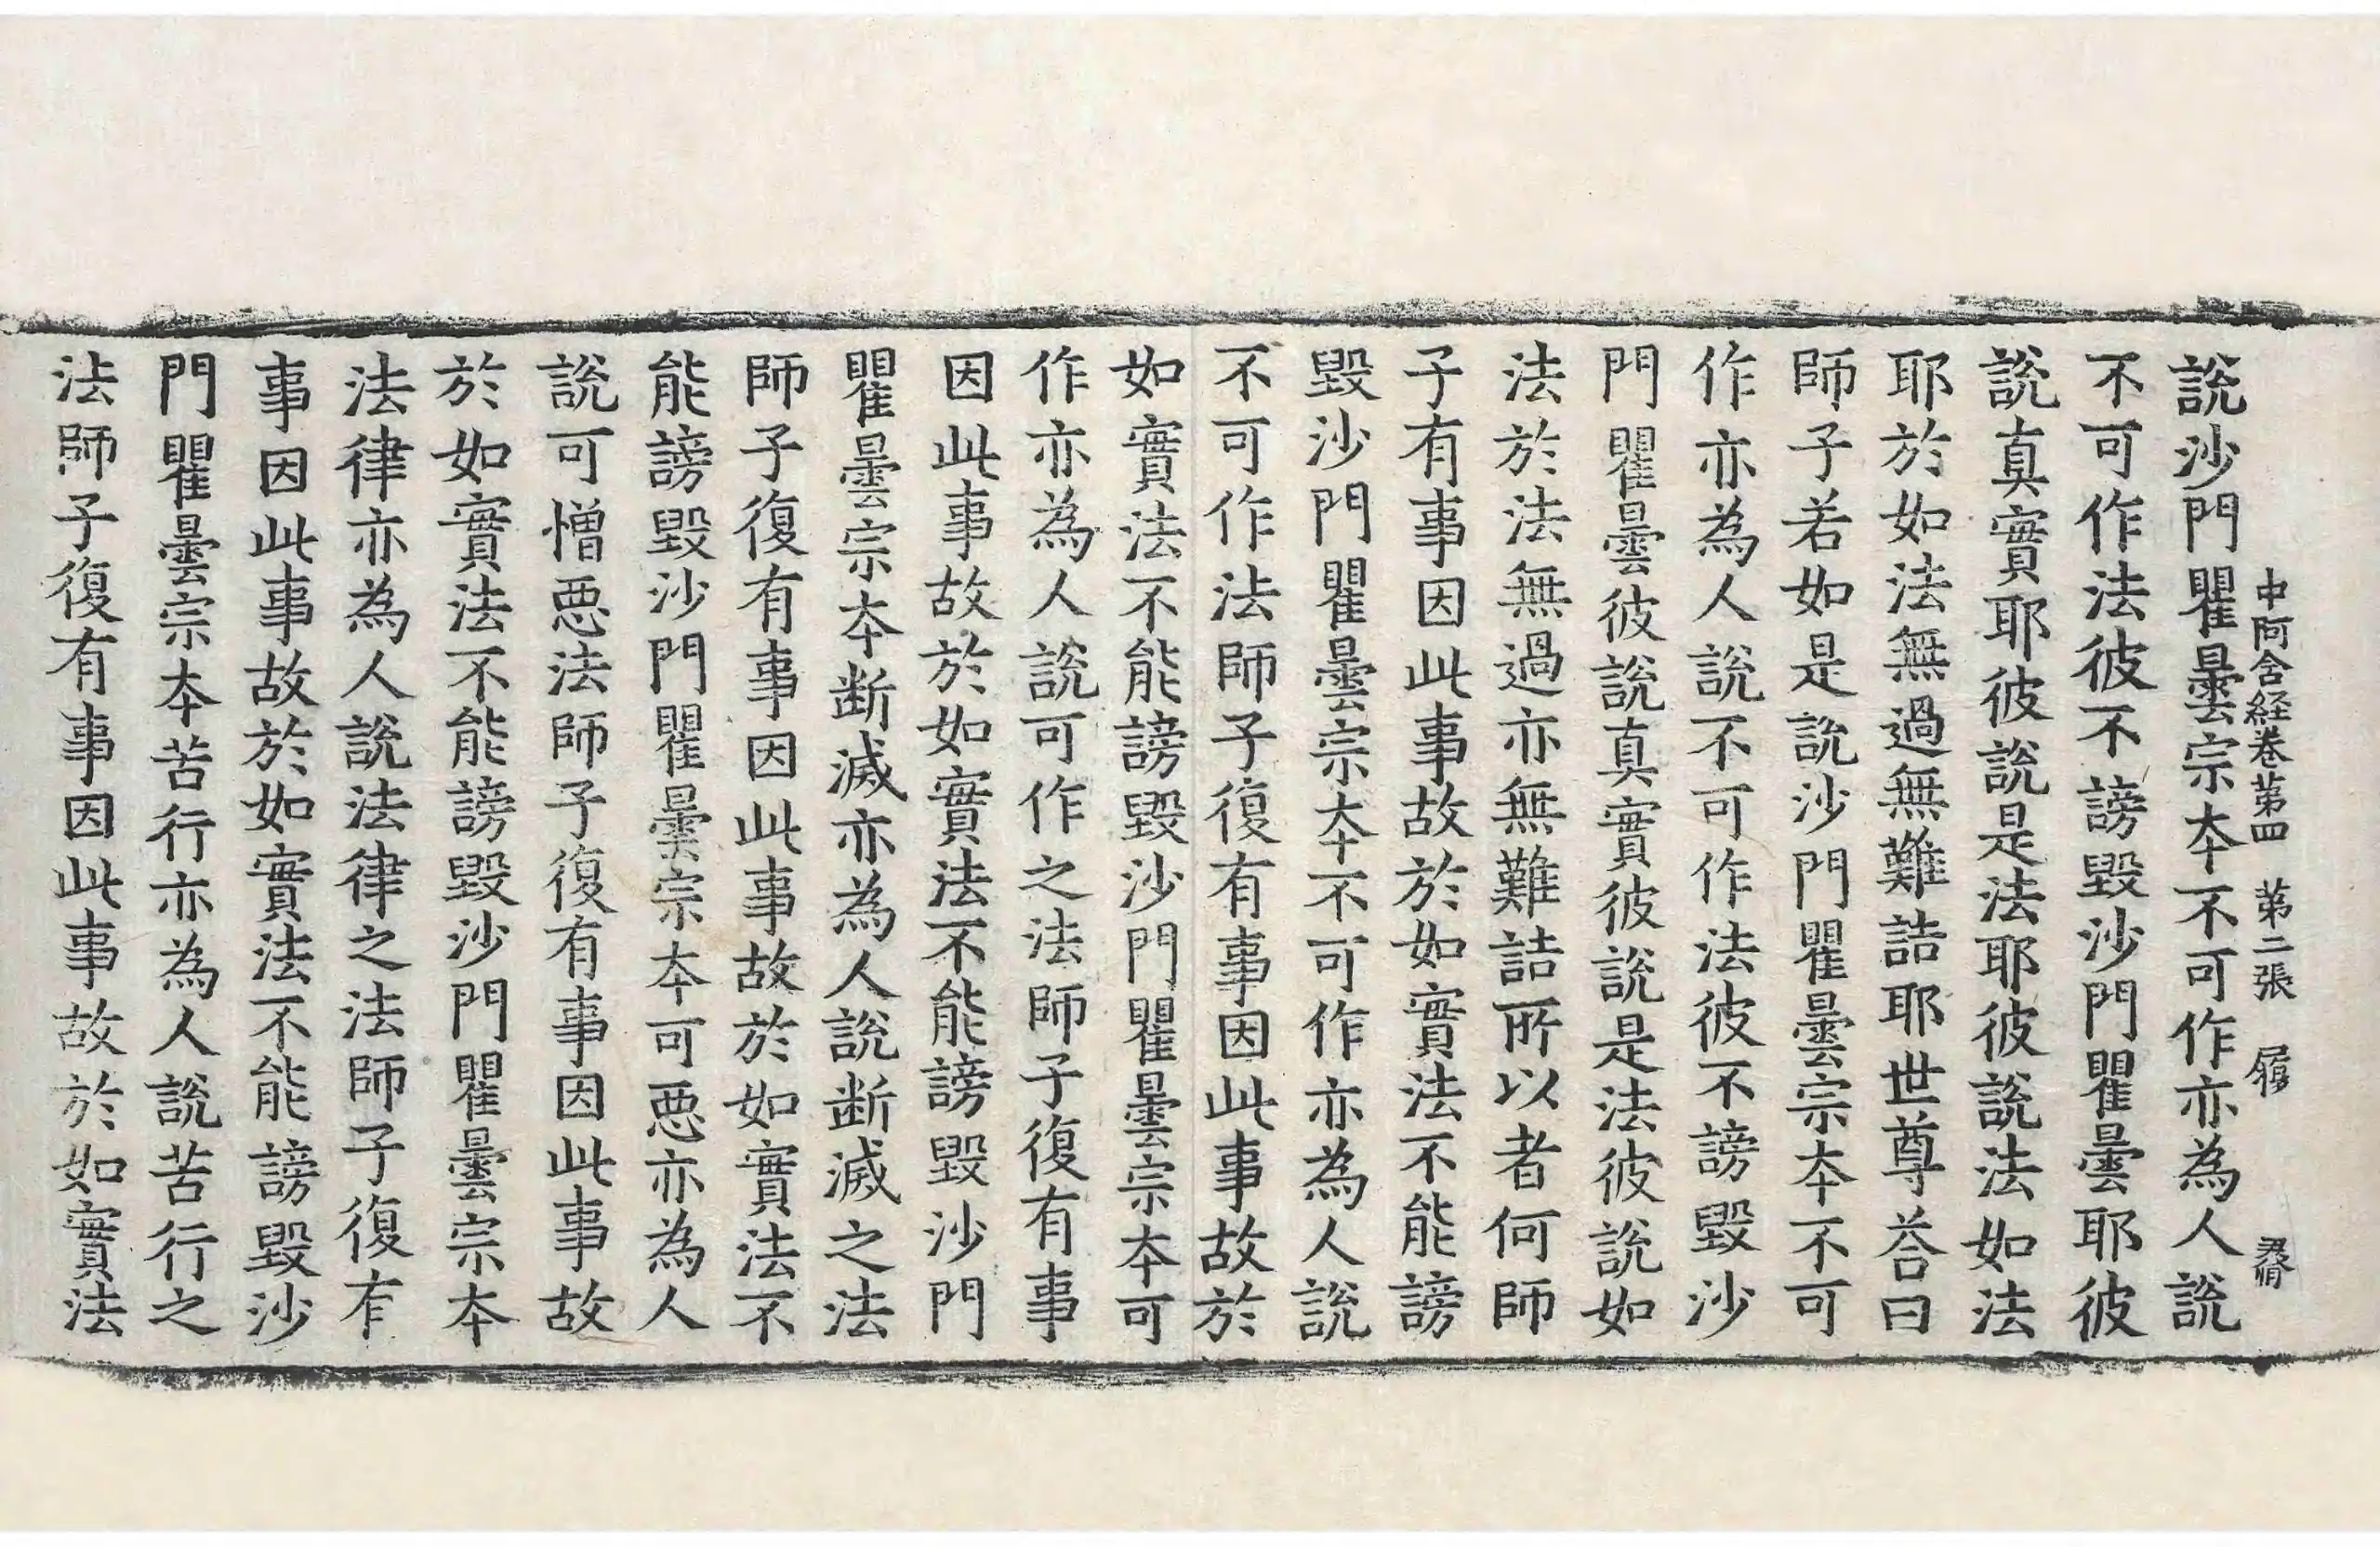 中阿含経卷苐四　苐二張　履
說沙門瞿曇宗夲不可作亦為人說
不可作法彼不謗毀沙門瞿曇耶彼
說真實耶彼說是法耶彼說法如法
耶於如法無過無難詰耶世尊荅曰
師子若如是說沙門瞿曇宗夲不可
作亦為人說不可作法彼不謗毀沙
門瞿曇彼說真實彼說是法彼說如
法於法無過亦無難詰所以者何師
子有事因此事故於如實法不能謗
毀沙門瞿曇宗夲不可作亦為人說
不可作法師子復有事因此事故於
如實法不能謗毀沙門瞿曇宗夲可
作亦為人說可作之法師子復有事
因此事故於如實法不能謗毀沙門
瞿曇宗夲断滅亦為人說断滅之法
師子復有事因此事故於如實法不
能謗毀沙門瞿曇宗夲可惡亦為人
說可憎惡法師子復有事因此事故
於如實法不能謗毀沙門瞿曇宗夲
法律亦為人說法律之法師子復有
事因此事故於如實法不能謗毀沙
門瞿曇宗夲苦行亦為人說苦行之
法師子復有事因此事故於如實法